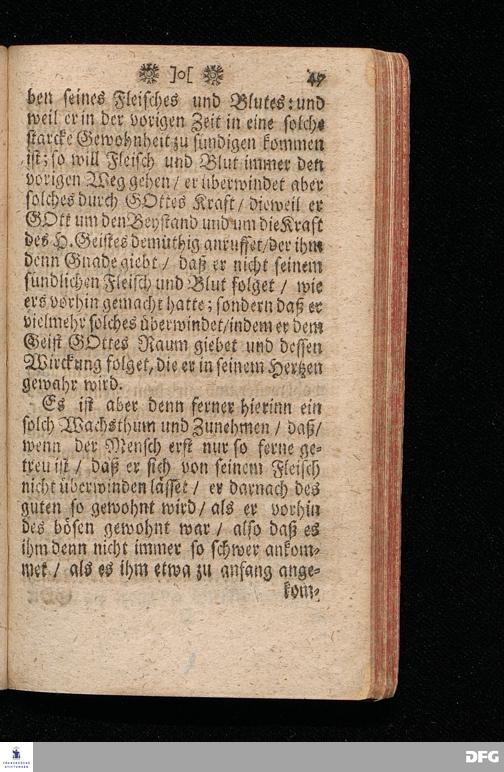 ]o[ 47
ben seines Fleisches und Blutes: und
weil er in der vorigen Zeit in eine solche
starcke Gewohnheit zu sündigen kommen
ist; so will Fleisch und Blut immer den
vorigen Weg gehen / er überwindet aber
solches durch GOttes Kraft / dieweil er
GOtt um den Beystand und um die Kraft
des H. Geistes demüthig anruffet / der ihm
denn Gnade giebt / daß er nicht seinem
sündlichen Fleisch und Blut folget / wie
ers vorhin gemacht hatte; sondern daß er
vielmehr solches überwindet / indem er dem
Geist GOttes Raum giebet und dessen
Wirckung folget, die er in seinem Hertzen
gewahr wird.
Es ist aber denn ferner hierinn ein
solch Wachsthum und Zunehmen / daß /
wenn der Mensch erst nur so ferne ge-
treu ist / daß er sich von seinem Fleisch
nicht überwinden lässet / er darnach des
guten so gewohnt wird / als er vorhin
des bösen gewohnt war / also daß es
ihm denn nicht immer so schwer ankom-
met / als es ihm etwa zu anfang ange-
kom-
FRANCKESCHE
STIFTUNGEN
DFG